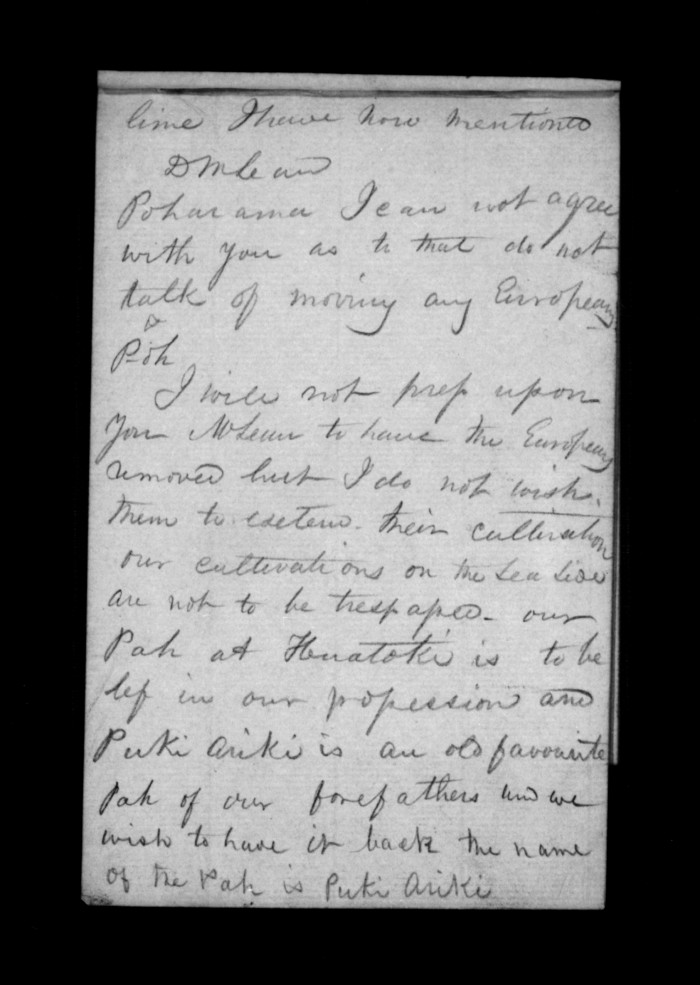 line I have now mentioned
D McLean
Poharama I can not agree
with you as to that do not
talk of moving any Europeans
Poh
I will not press upon
you McLean to have the Europeans
removed but I do not wish.
them to extend - their cultivation
our cultivations on the Sea Side
are not to be trespassed - our
Pah at Huatoki is to be
lef in our possession and
Puki Ariki is an old favourite
Pah of our forefathers and we
wish to have it back the name
of the Pah is Puki Ariki